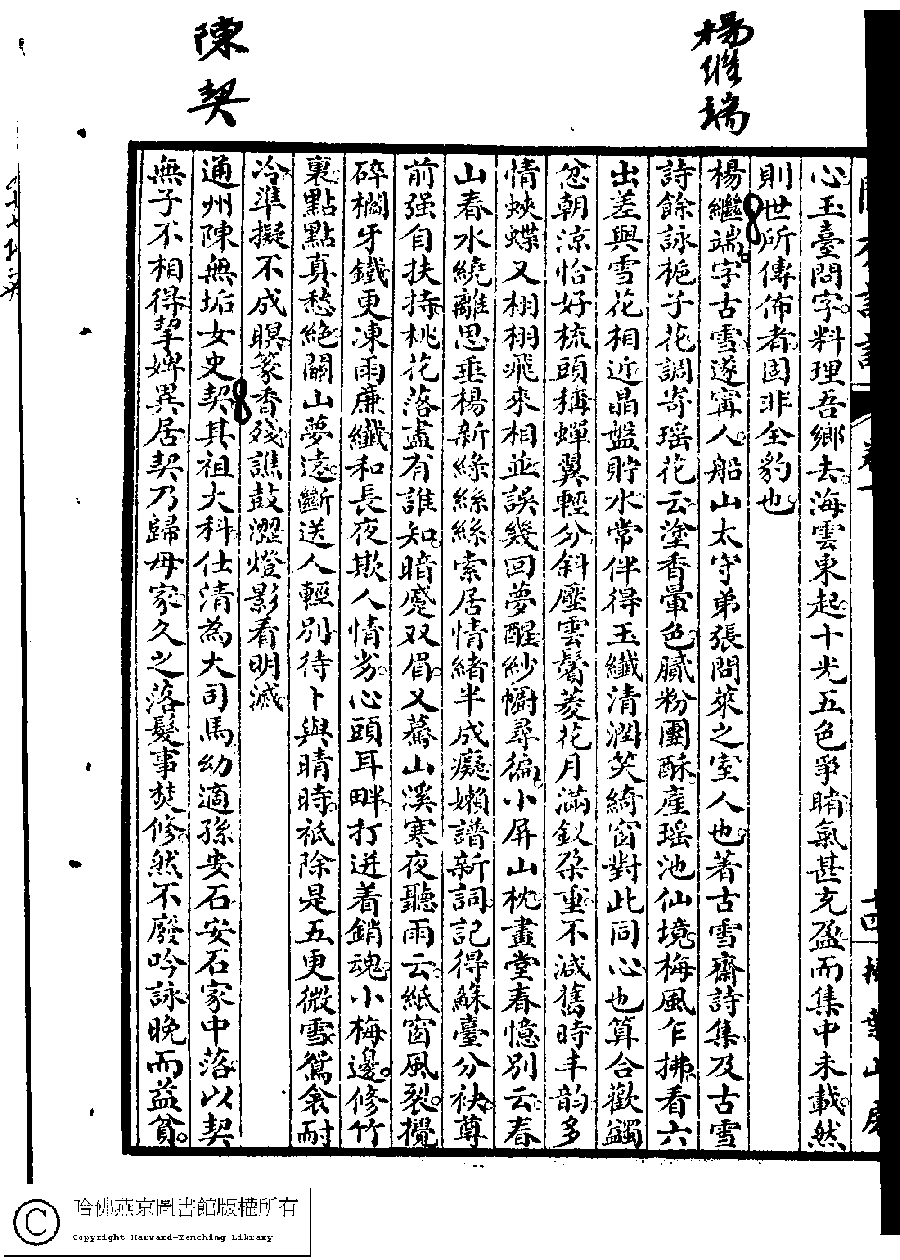 楊繼端
陳契
心玉臺問字料理吾鄉去海雲東起十光五色爭睛氣甚充盈而集中未載然
則世所傳佈者固非全豹也
楊繼端字古雪遂甯人船山太守弟張問萊之室人也著古雪齋詩集及古雪
詩餘詠梔子花調寄瑶花云塗香暈色膩粉團酥産瑶池仙境梅風乍拂看六
出差與雪花相近晶盤貯水常伴得玉纖清潤笑綺窗對此同心也算合歡蠲
忿朝涼恰好梳頭稱蟬翼輕分斜壓雲鬢菱花月滿釵朶重不減舊時丰韵多
情蛺蝶又栩栩飛來相並誤幾回夢醒紗幮尋徧小屏山枕畫堂春憶別云春
山春水繞離思垂楊新綠絲絲索居情緒半成癡嬾譜新詞記得蘇臺分袂尊
前强自扶持桃花落盡有誰知暗蹙双眉又驀山溪寒夜聽雨云紙窗風裂攪
碎櫚牙鐵更凍雨廉纖和長夜欺人情劣心頭耳畔打迸着銷魂小梅邊修竹
裏點點真愁絕關山夢遠斷送人輕別待卜與晴時祗除是五更微雪鴛衾耐
冷準擬不成暝篆香殘譙鼓澀燈影看明滅
通州陳無垢女史契其祖大科仕清為大司馬幼適孫安石安石家中落以契
無子不相得挈婢異居契乃歸母家久之落髮事焚修然不廢吟詠晚而益貧
十四
哈佛燕京圖書館版權所有
Copyright Harvard-Yenching Library